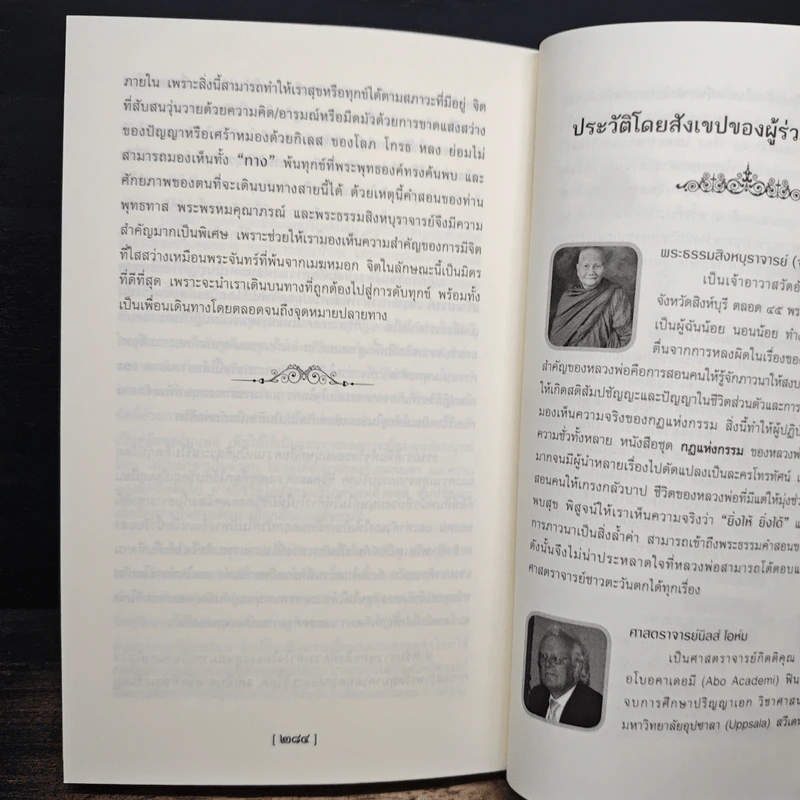 ภายใน เพราะสิ่งนี้สามารถทำให้เราสุขหรือทุกข์ได้ตามสภาวะที่มีอยู่ จิต
ที่สับสนวุ่นวายด้วยความคิด/อารมณ์หรือมืดมัวด้วยการขาดแสงสว่าง
ของปัญญาหรือเศร้าหมองด้วยกิเลส ของโลภ โกรธ หลง ย่อมไม่
สามารถมองเห็นทั้ง “ทาง” พ้นทุกข์ที่พระพุทธองค์ทรงค้นพบ และ
ศักยภาพของตนที่จะเดินบนทางสายนี้ได้ ด้วยเหตุนี้คำสอนของท่าน
พุทธทาส พระพรหมคุณาภรณ์ และพระธรรมสิงหบุราจารย์จึงมีความ
สำคัญมากเป็นพิเศษ เพราะช่วยให้เรามองเห็นความสำคัญของการมีจิต
ที่ใสสว่างเหมือนพระจันทร์ที่พ้นจากเมฆหมอก จิตในลักษณะนี้เป็นมิตร
ที่ดีที่สุด เพราะจะนำเราเดินบนทางที่ถูกต้องไปสู่การดับทุกข์ พร้อมทั้ง
เป็นเพื่อนเดินทางโดยตลอดจนถึงจุดหมายปลายทาง
[ ๒๘๔ ]
ประวัติโดยสังเขปของผู้ร่ว
พระธรรมสิงหบุราจารย์ (จ
เป็นเจ้าอาวาสวัดอั
จังหวัดสิงห์บุรี ตลอด ๔๕ พร
เป็นผู้ฉันน้อย นอนน้อย ทำ
ตื่นจากการหลงผิดในเรื่องของ
สำคัญของหลวงพ่อคือการสอนคนให้รู้จักภาวนาให้สงบ
ให้เกิดสติสัมปชัญญะและปัญญาในชีวิตส่วนตัวและการ
มองเห็นความจริงของกฎแห่งกรรม สิ่งนี้ทำให้ผู้ปฏิบั
ความชั่วทั้งหลาย หนังสือชุด กฎแห่งกรรม ของหลวงพ่
มากจนมีผู้นำหลายเรื่องไปดัดแปลงเป็นละครโทรทัศน์ เ
สอนคนให้เกรงกลัวบาป ชีวิตของหลวงพ่อที่มีแต่ให้มุ่งช่ว
พบสุข พิสูจน์ให้เราเห็นความจริงว่า “ยิ่งให้ ยิ่งได้” แ
การภาวนาเป็นสิ่งล้ำค่า สามารถเข้าถึงพระธรรมคำสอนข
ดังนั้นจึงไม่น่าประหลาดใจที่หลวงพ่อสามารถโต้ตอบแ
ศาสตราจารย์ชาวตะวันตกได้ทุกเรื่อง
ศาสตราจารย์นิลส์ โอห์ม
เป็นศาสตราจารย์กิตติคุณ
อโบอคาเดอมี (Abo Academi) ฟิน
จบการศึกษาปริญญาเอก วิชาศาสน
มหาวิทยาลัยอุปซาลา (Uppsala) สวีเดน